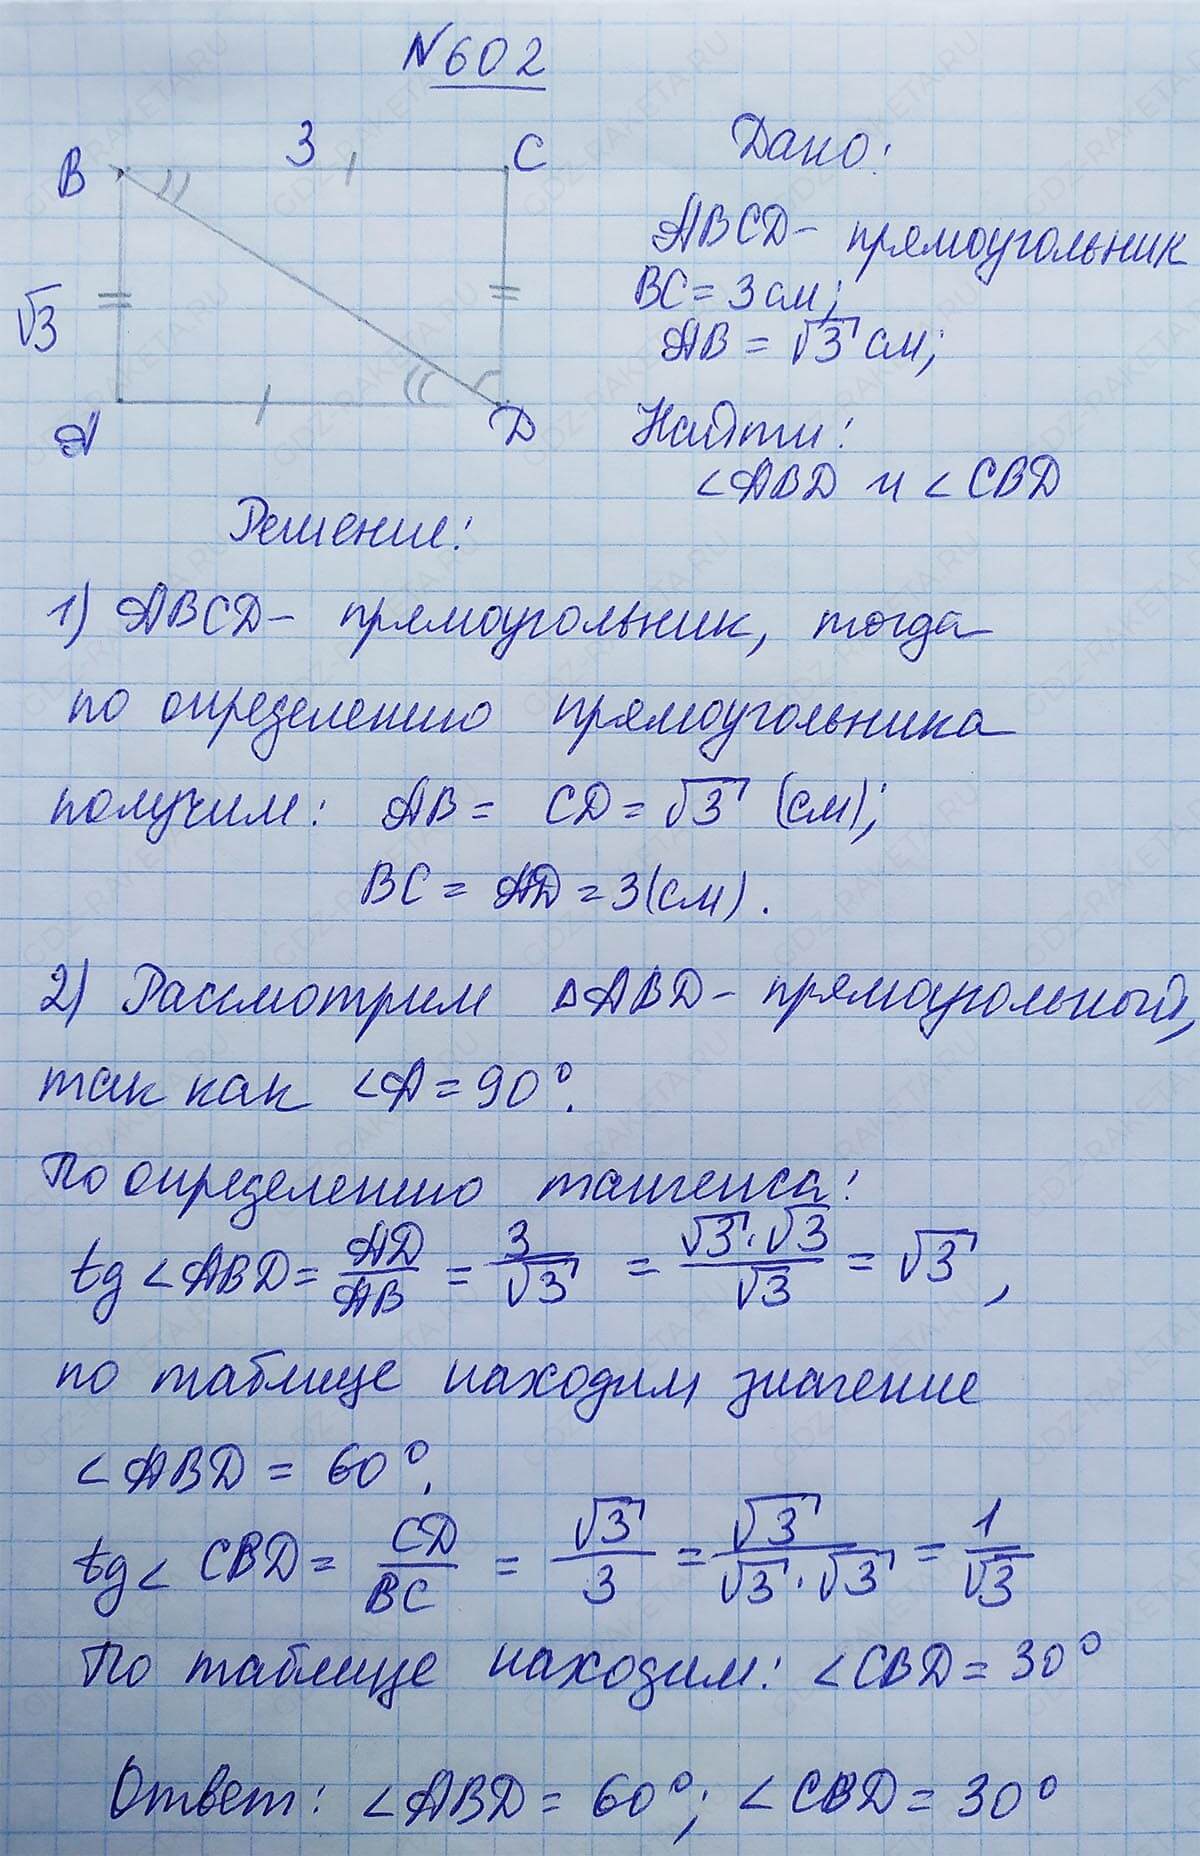 N602
3
B
C
√3
A
D
Дано:
ABCD - прямоугольник
BC = 3 см;
AB = √3 см;
Найти:
∠ABD и ∠CBD
Решение:
1) ABCD - прямоугольник, тогда
по определению прямоугольника
получим: AB = CD = √3 (см);
BC = AD = 3 (см).
2) Рассмотрим △ABD - прямоугольный,
так как ∠A = 90°.
По определению тангенса:
tg∠ABD = AD/AB = 3/√3 = √3·√3/√3 = √3,
по таблице находим значение
∠ABD = 60°.
tg∠CBD = CD/BC = √3/3 = √3/√3·√3 = 1/√3
По таблице находим: ∠CBD = 30°
Ответ: ∠ABD = 60°; ∠CBD = 30°
GDZ-RAKETA.RU